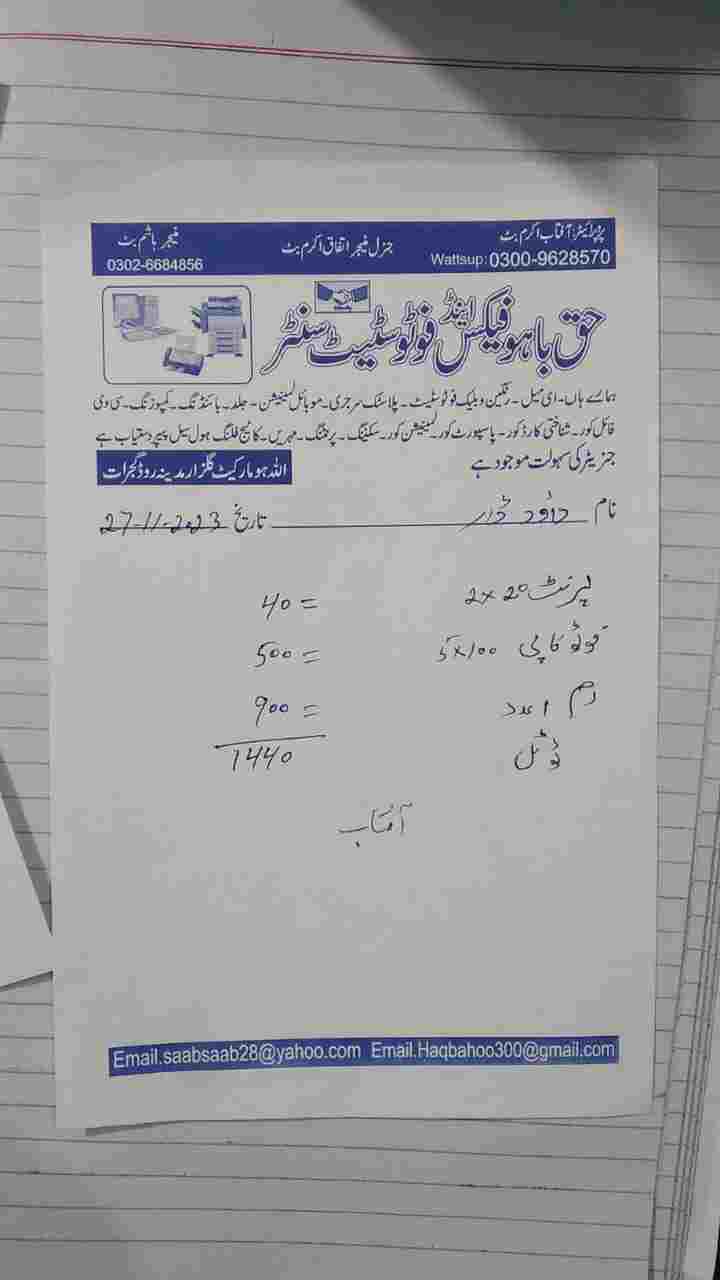 پروپرائیٹر: آفتاب اکرم بٹ جنرل منیجر اتفاق اکرم بٹ منیجر ہاشم بٹ
Wattsup: 0300-9628570 0302-6684856
حق باہو فیکس اینڈ فوٹو سٹیٹ سنٹر
ہمارے ہاں۔ ای میل۔ رنگین و بلیک فوٹوسٹیٹ۔ پلاسٹک سرجری۔ موبائل لیمینیشن۔ جلد۔ بائنڈنگ۔ کمپوزنگ۔ سی وی
فائل کور۔ شناختی کارڈ کور۔ پاسپورٹ کور۔ لیمینیشن کور۔ سکینگ۔ پرنٹنگ۔ مہریں۔ کالج فلنگ ہول سیل پیپر دستیاب ہے
جنریٹر کی سہولت موجود ہے
اللہ ہو مارکیٹ گلزار مدینہ روڈ گجرات
نام داؤد ڈار تاریخ 27-11-2023
پرنٹ 2×20 = 40
فوٹو کاپی 5×100 = 500
رم 1 عدد = 900
ٹوٹل 1440
آفتاب
Email.saabsaab28@yahoo.com Email.Haqbahoo300@gmail.com